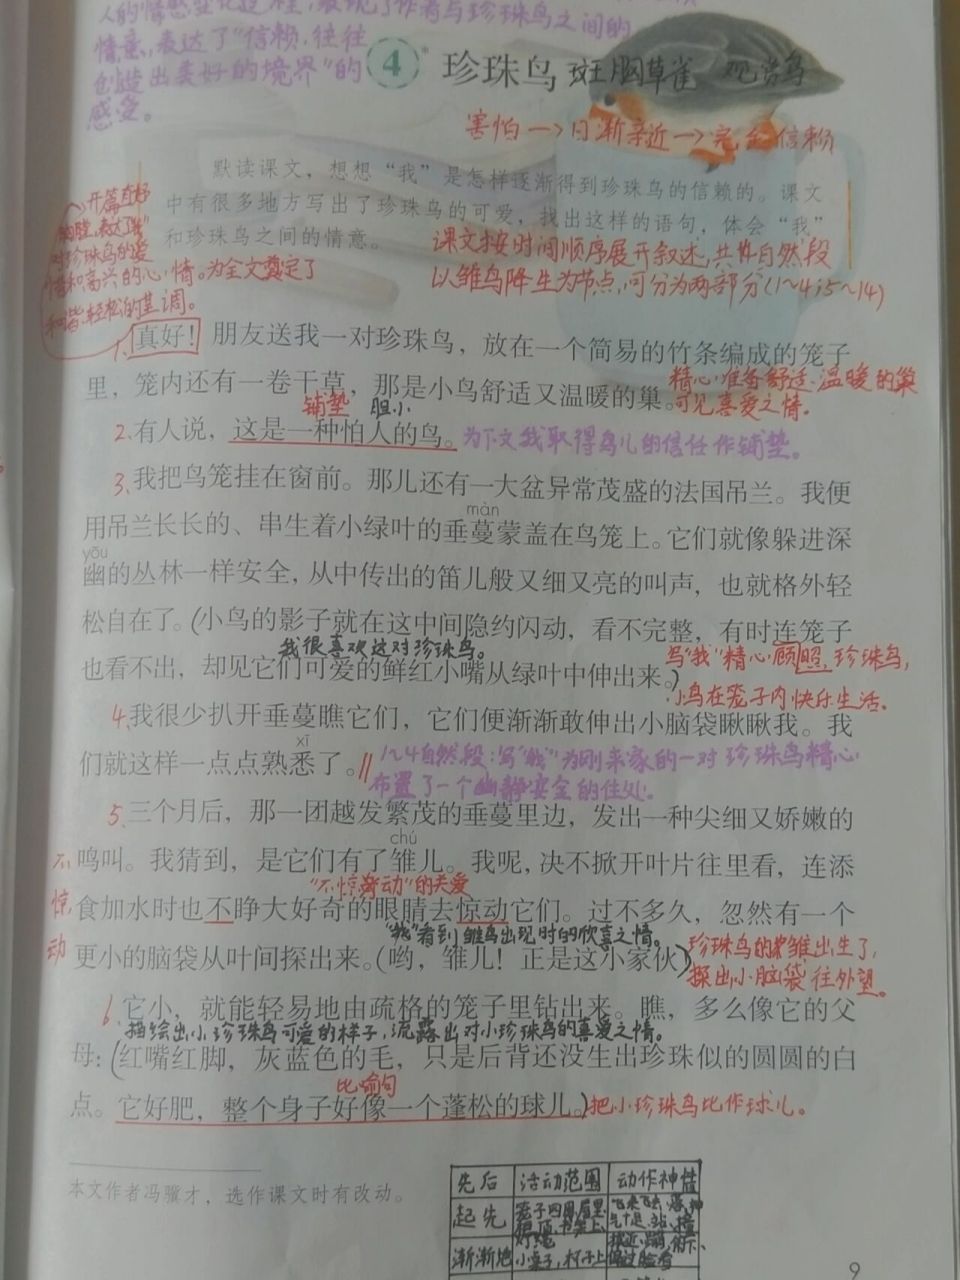 人的情感变化过程，表现了作者与珍珠鸟之间的
情意，表达了“信赖，往往
创造出美好的境界”的
感受。
4*
珍珠鸟 斑胸草雀 观赏鸟
害怕→日渐亲近→完全信赖
默读课文，想想“我”是怎样逐渐得到珍珠鸟的信赖的。课文
中有很多地方写出了珍珠鸟的可爱，找出这样的语句，体会“我”
和珍珠鸟之间的情意。
开篇直抒
胸臆，表达了“我”
对珍珠鸟的爱
惜和高兴的心情。为全文奠定了
和谐、轻松的基调。
课文按时间顺序展开叙述，共14自然段
以雏鸟降生为节点，可分为两部分（1~4；5~14）
1、真好！朋友送我一对珍珠鸟，放在一个简易的竹条编成的笼子
里，笼内还有一卷干草，那是小鸟舒适又温暖的巢。
精心准备舒适、温暖的巢
可见喜爱之情。
铺垫 胆小
2、有人说，这是一种怕人的鸟。为下文我取得鸟儿的信任作铺垫。
3、我把鸟笼挂在窗前。那儿还有一大盆异常茂盛的法国吊兰。我便
màn
用吊兰长长的、串生着小绿叶的垂蔓蒙盖在鸟笼上。它们就像躲进深
yōu
幽的丛林一样安全，从中传出的笛儿般又细又亮的叫声，也就格外轻
松自在了。（小鸟的影子就在这中间隐约闪动，看不完整，有时连笼子
我很喜欢这对珍珠鸟。
也看不出，却见它们可爱的鲜红小嘴从绿叶中伸出来。）
写“我”精心顾照，珍珠鸟，
小鸟在笼子内快乐生活。
4、我很少扒开垂蔓瞧它们，它们便渐渐敢伸出小脑袋瞅瞅我。我
xī
们就这样一点点熟悉了。//
1~4自然段：写“我”为刚来家的一对珍珠鸟精心
布置了一个幽静安全的住处。
5、三个月后，那一团越发繁茂的垂蔓里边，发出一种尖细又娇嫩的
chú
鸣叫。我猜到，是它们有了雏儿。我呢，决不掀开叶片往里看，连添
“不惊动”的关爱
食加水时也不睁大好奇的眼睛去惊动它们。过不多久，忽然有一个
不
惊
动
“我”看到雏鸟出现时的欣喜之情。
更小的脑袋从叶间探出来。（哟，雏儿！正是这小家伙）
珍珠鸟的雏出生了，
探出小脑袋往外望。
6、它小，就能轻易地由疏格的笼子里钻出来。瞧，多么像它的父
描绘出小珍珠鸟可爱的样子，流露出对小珍珠鸟的喜爱之情。
母：（红嘴红脚，灰蓝色的毛，只是后背还没生出珍珠似的圆圆的白
比喻句
点。它好肥，整个身子好像一个蓬松的球儿。）把小珍珠鸟比作球儿。
本文作者冯骥才，选作课文时有改动。
先后 活动范围 动作神情
起先 笼子四周、屋里、
书架上、
渐渐地 小桌子，杯子上
9